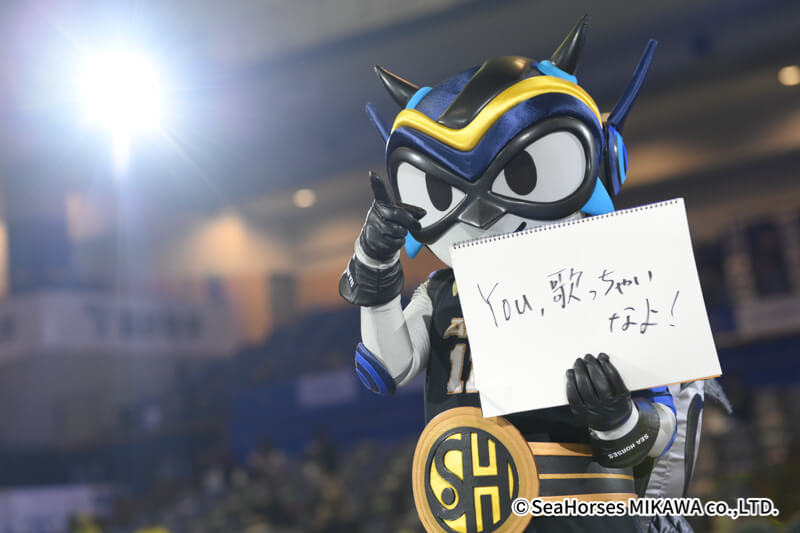 You, 歌っちゃい
なよ!
SEA HORSES
SH
©SeaHorses MIKAWA co.,LTD.